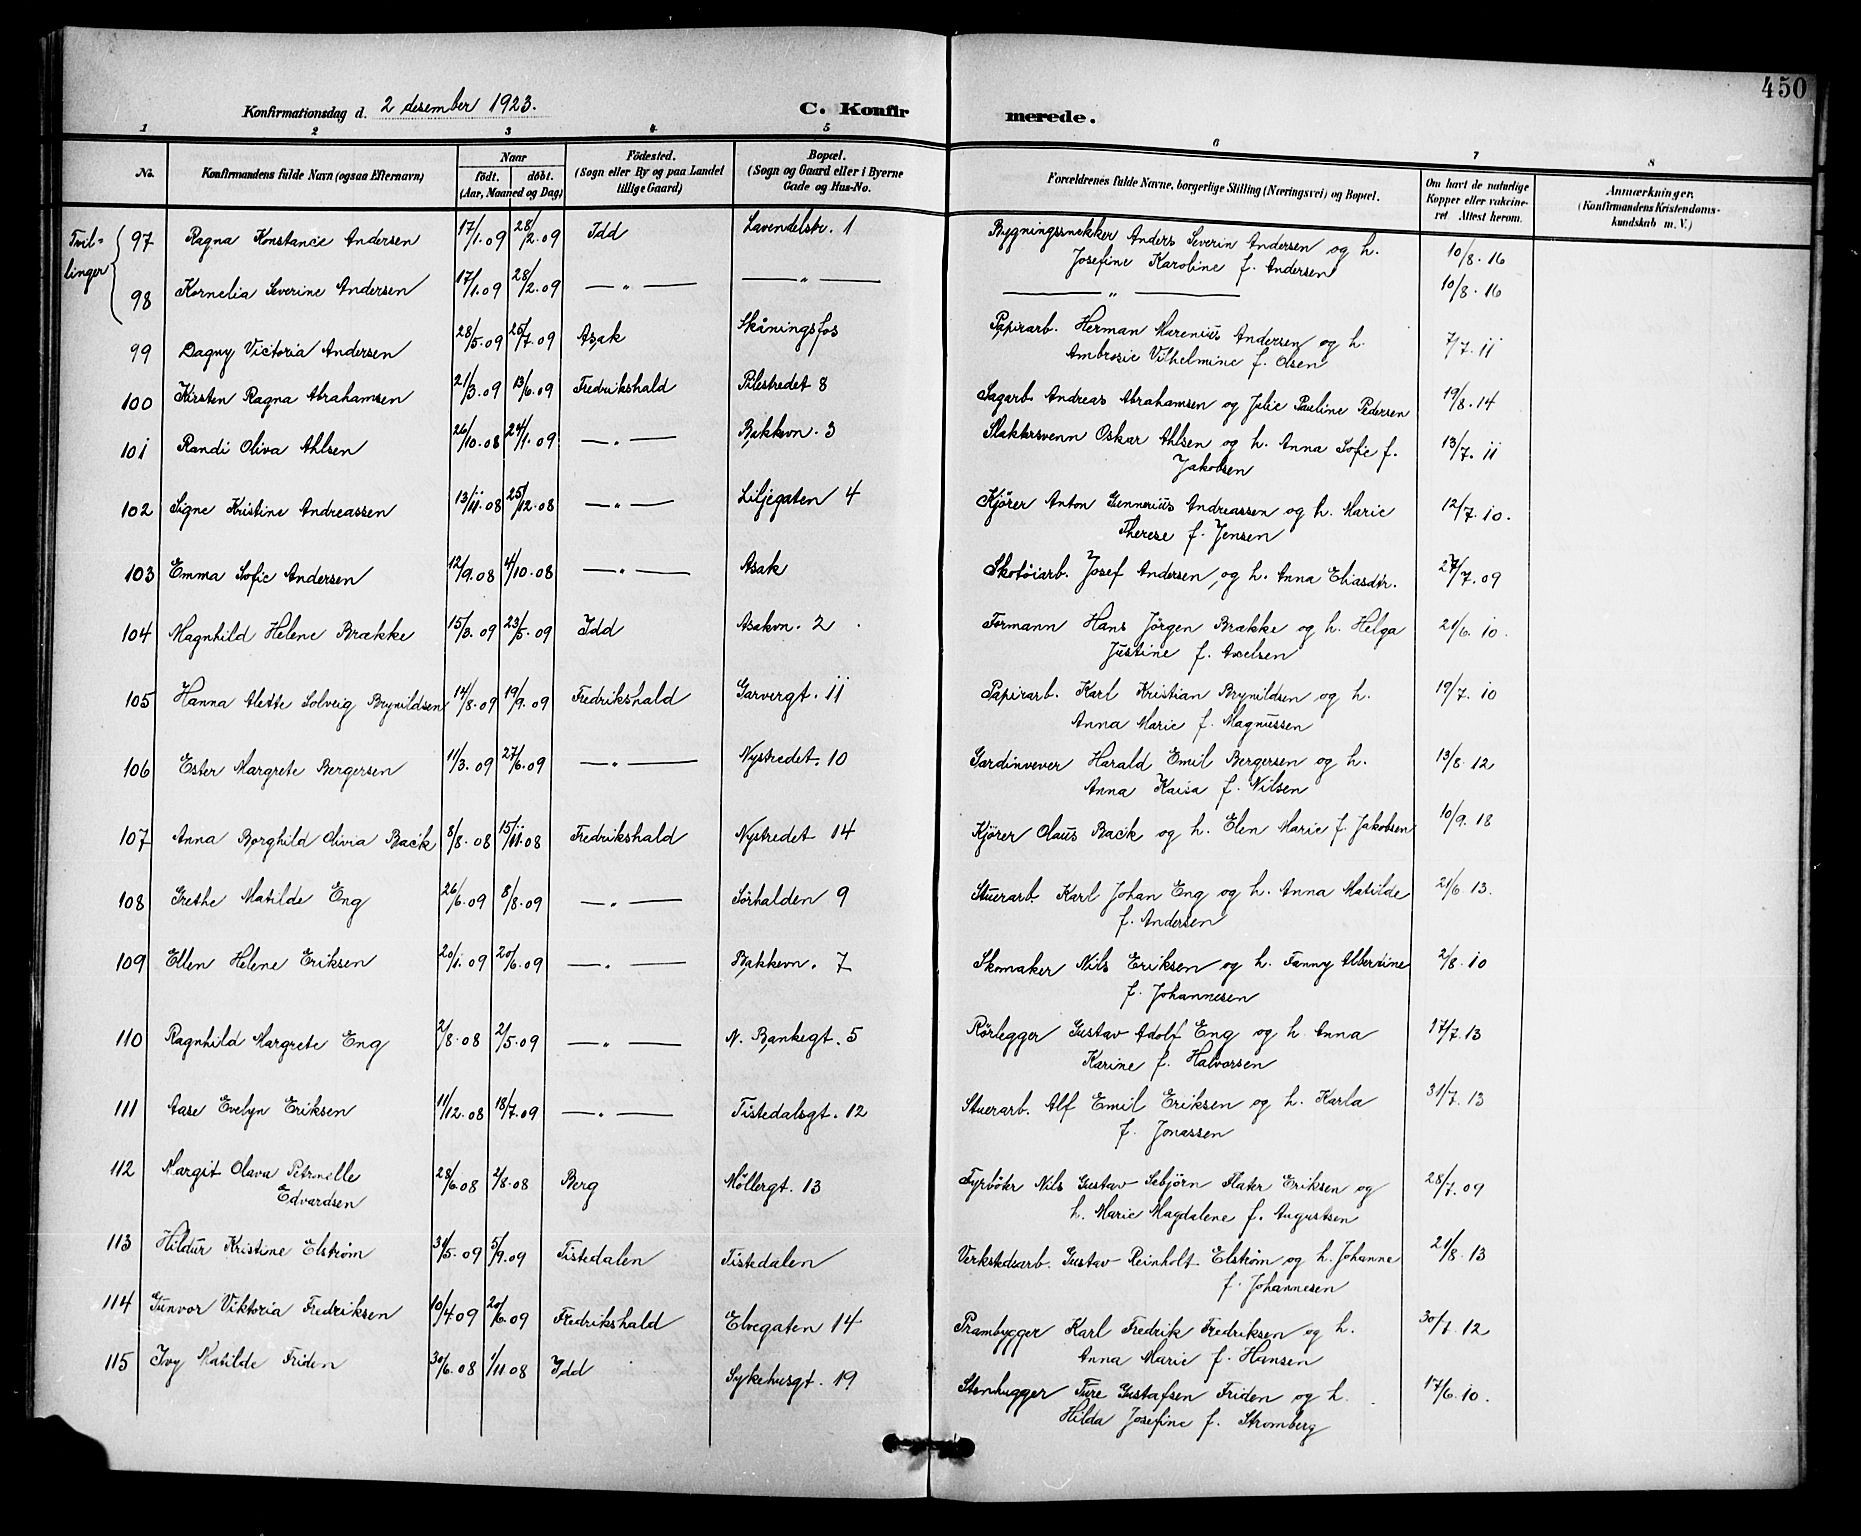 450
Konfirmationsdag d. 2 desember 1923.
C. Konfirmerede.
1 2 3 4 5 6 7 8
No. Konfirmandens fulde Navn (ogsaa Efternavn) Naar födt. döbt. (Aar, Maaned og Dag) Födested. (Sogn eller By og paa Landet tillige Gaard) Bopæl. (Sogn og Gaard eller i Byerne Gade og Hus-No. Forældrenes fulde Navne, borgerlige Stilling (Næringsvei) og Bopæl. Om havt de naturlige Kopper eller vakcineret. Attest herom. Anmærkninger. (Konfirmandens Kristendomskundskab m. V.)
Tvillinger
97 Ragna Konstance Andersen 17/1.09 28/2.09 Idd Lavendelstr. 1 Bygningssnekker Anders Severin Andersen og h. 10/8.16
Josefine Karoline f. Andersen
98 Kornelia Severine Andersen 17/1.09 28/2.09 — " — — " — — " — 10/8.16
99 Dagny Victoria Andersen 28/5.09 25/7.09 Asak Skåningsfos Papirarb. Herman Marenius Andersen og h. 7/7.11
Ambrosie Vilhelmine f. Olsen
100 Kirsten Ragna Abrahamsen 21/3.09 13/6.09 Fredrikshald Pilestredet 8 Sagarb. Andreas Abrahamsen og Julie Pauline Pedersen 19/8.14
101 Randi Oliva Ahlsen 26/10.08 24/1.09 — " — Bakkevn. 3 Slaktersvenn Oskar Ahlsen og h. Anna Sofie f. 13/7.11
Jakobsen
102 Signe Kristine Andreassen 13/11.08 25/12.08 — " — Liljegaten 4 Kjörer Anton Gunnerius Andreassen og h. Marie 12/7.10.
Therese f. Jensen
103 Emma Sofie Andersen 12/9.08 4/10.08 — " — Asak Skotöiarb. Josef Andersen, og h. Anna Eliasdtr. 27/7.09
104 Magnhild Helene Brække 15/3.09 23/5.09 Idd Asakvn. 2 Formann Hans Jörgen Brække og h. Helga 21/6.10.
Justine f. Axelsen
105 Hanna Alette Solveig Brynildsen 14/8.09 19/9.09 Fredrikshald Garvergt. 11 Papirarb. Karl Kristian Brynildsen og h. 19/7.10
Anna Marie f. Magnussen
106 Ester Margrete Bergersen 11/3.09 27/6.09 — " — Nystredet. 10 Gardinvever Harald Emil Bergersen og h. 13/8.12
Anna Kaisa f. Nilsen
107 Anna Borghild Olivia Back 8/8.08 15/11.08 Fredrikshald Nystredet 14 Kjörer Olaus Back og h. Elen Marie f. Jakobsen 10/9.18
108 Grethe Matilde Eng 26/6.09 8/8.09 — " — Sörhalden 9 Stuerarb. Karl Johan Eng og h. Anna Matilde 21/6.13.
f. Andersen
109 Ellen Helene Eriksen 20/1.09 20/6.09 — " — Bakkevn. 7 Skomaker Nils Eriksen og h. Fanny Albertine 2/8.10
f. Johannesen
110 Ragnhild Margrete Eng 2/8.08 2/5.09 — " — N. Bankegt. 5 Rörlegger Gustav Adolf Eng og h. Anna 17/7.13
Karine f. Halvorsen
111 Aase Evelyn Eriksen 11/12.08 18/7.09 — " — Tistedalsgt. 12 Stuerarb. Alf Emil Eriksen og h. Karla 31/7.13
f. Jonassen
112 Margit Olava Petrnelle 28/6.08 2/8.08 Berg Möllergt. 13 Fyrböter Nils Gustav Sebjörn Flater Eriksen og 28/7.09
Edvardsen h. Marie Magdalene f. Augustsen
113 Hildur Kristine Elström 31/5.09 5/9.09 Tistedalen Tistedalen Verkstedsarb. Gustav Reinholt Elström og h. Johanne 21/8.13
f. Johannesen
114 Gunvor Viktoria Fredriksen 10/4.09 20/6.09 Fredrikshald Elvegaten 14 Prambygger Karl Fredrik Fredriksen og h. 30/7.12
Anna Marie f. Hansen
115 Ivy Matilde Friden 30/6.08 1/11.08 Idd Sykehusgt. 19 Stenhugger Ture Gustafsen Friden og h. 17/6.10.
Hilda Josefine f. Stromberg